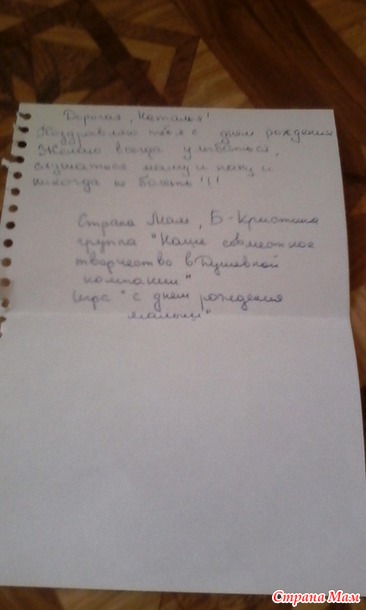 Дорогая, Наталья!
Поздравляю тебя с днем рождения
Желаю всегда улыбаться,
слушаться маму и папу и
никогда не болеть!!!
Страна Мам, Б-Кристина
группа "Наше совместное
творчество в Душевной
компании"
Игра "С днем рождения
малыш"
Страна Мам